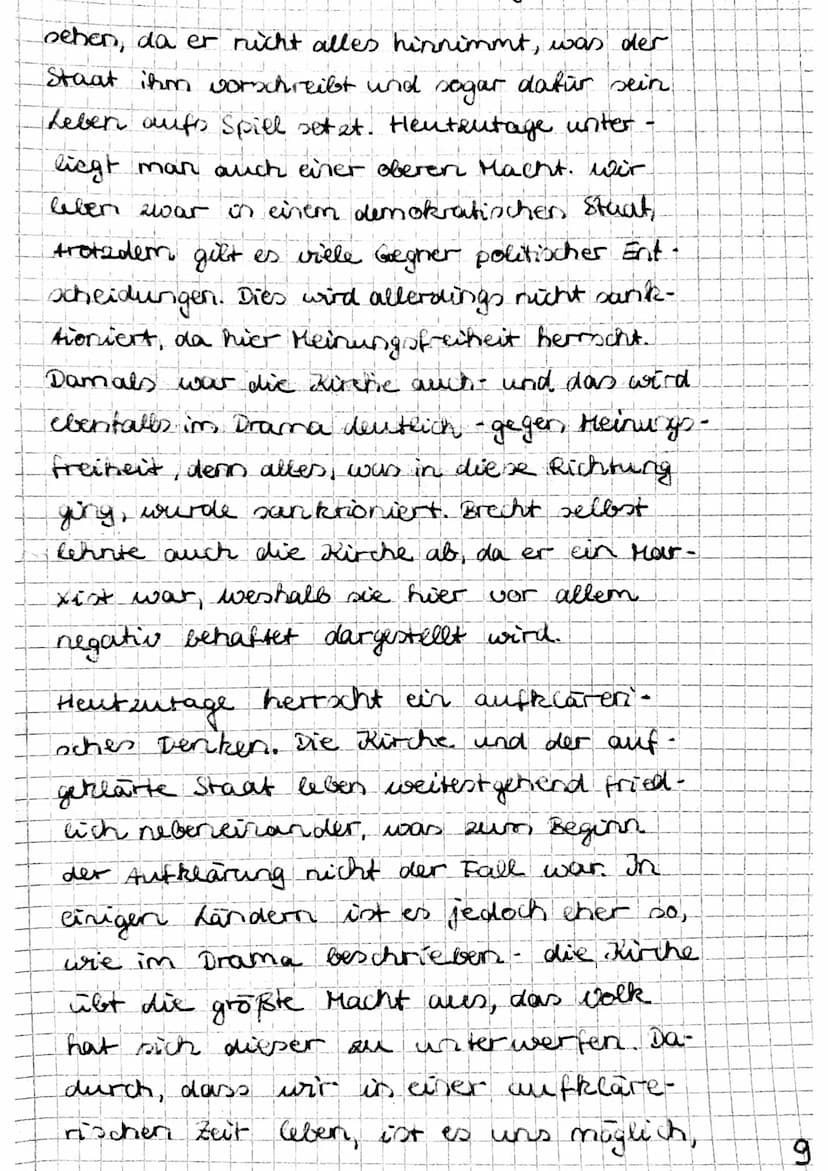 sehen, da er nicht alles hinnimmt, was der
Staat ihm vorschreibt und sogar dafür sein
Leben aufs Spiel setzt. Heutzutage unter-
liegt man auch einer oberen Macht. Wir
leben zwar in einem demokratischen Staat,
trotzdem gibt es viele Gegner politischer Ent-
scheidungen. Dies wird allerdings nicht sank-
tioniert, da hier Meinungsfreiheit herrscht.
Damals war die Kirche auch - und das wird
ebenfalls im Drama deutlich - gegen Meinungs-
freiheit, denn alles, was in diese Richtung
ging, wurde sanktioniert. Brecht selbst
lehnte auch die Kirche ab, da er ein Mar-
xist war, weshalb sie hier vor allem
negativ behaftet dargestellt wird.
Heutzutage herrscht ein aufkläreri-
sches Denken. Die Kirche und der auf-
geklärte Staat leben weitestgehend fried-
lich nebeneinander, was zum Beginn
der Aufklärung nicht der Fall war. In
einigen Ländern ist es jedoch eher so,
wie im Drama beschrieben - die Kirche
übt die größte Macht aus, das Volk
hat sich dieser zu unterwerfen. Da-
durch, dass wir in einer aufkläre-
rischen Zeit leben, ist es uns möglich,
9